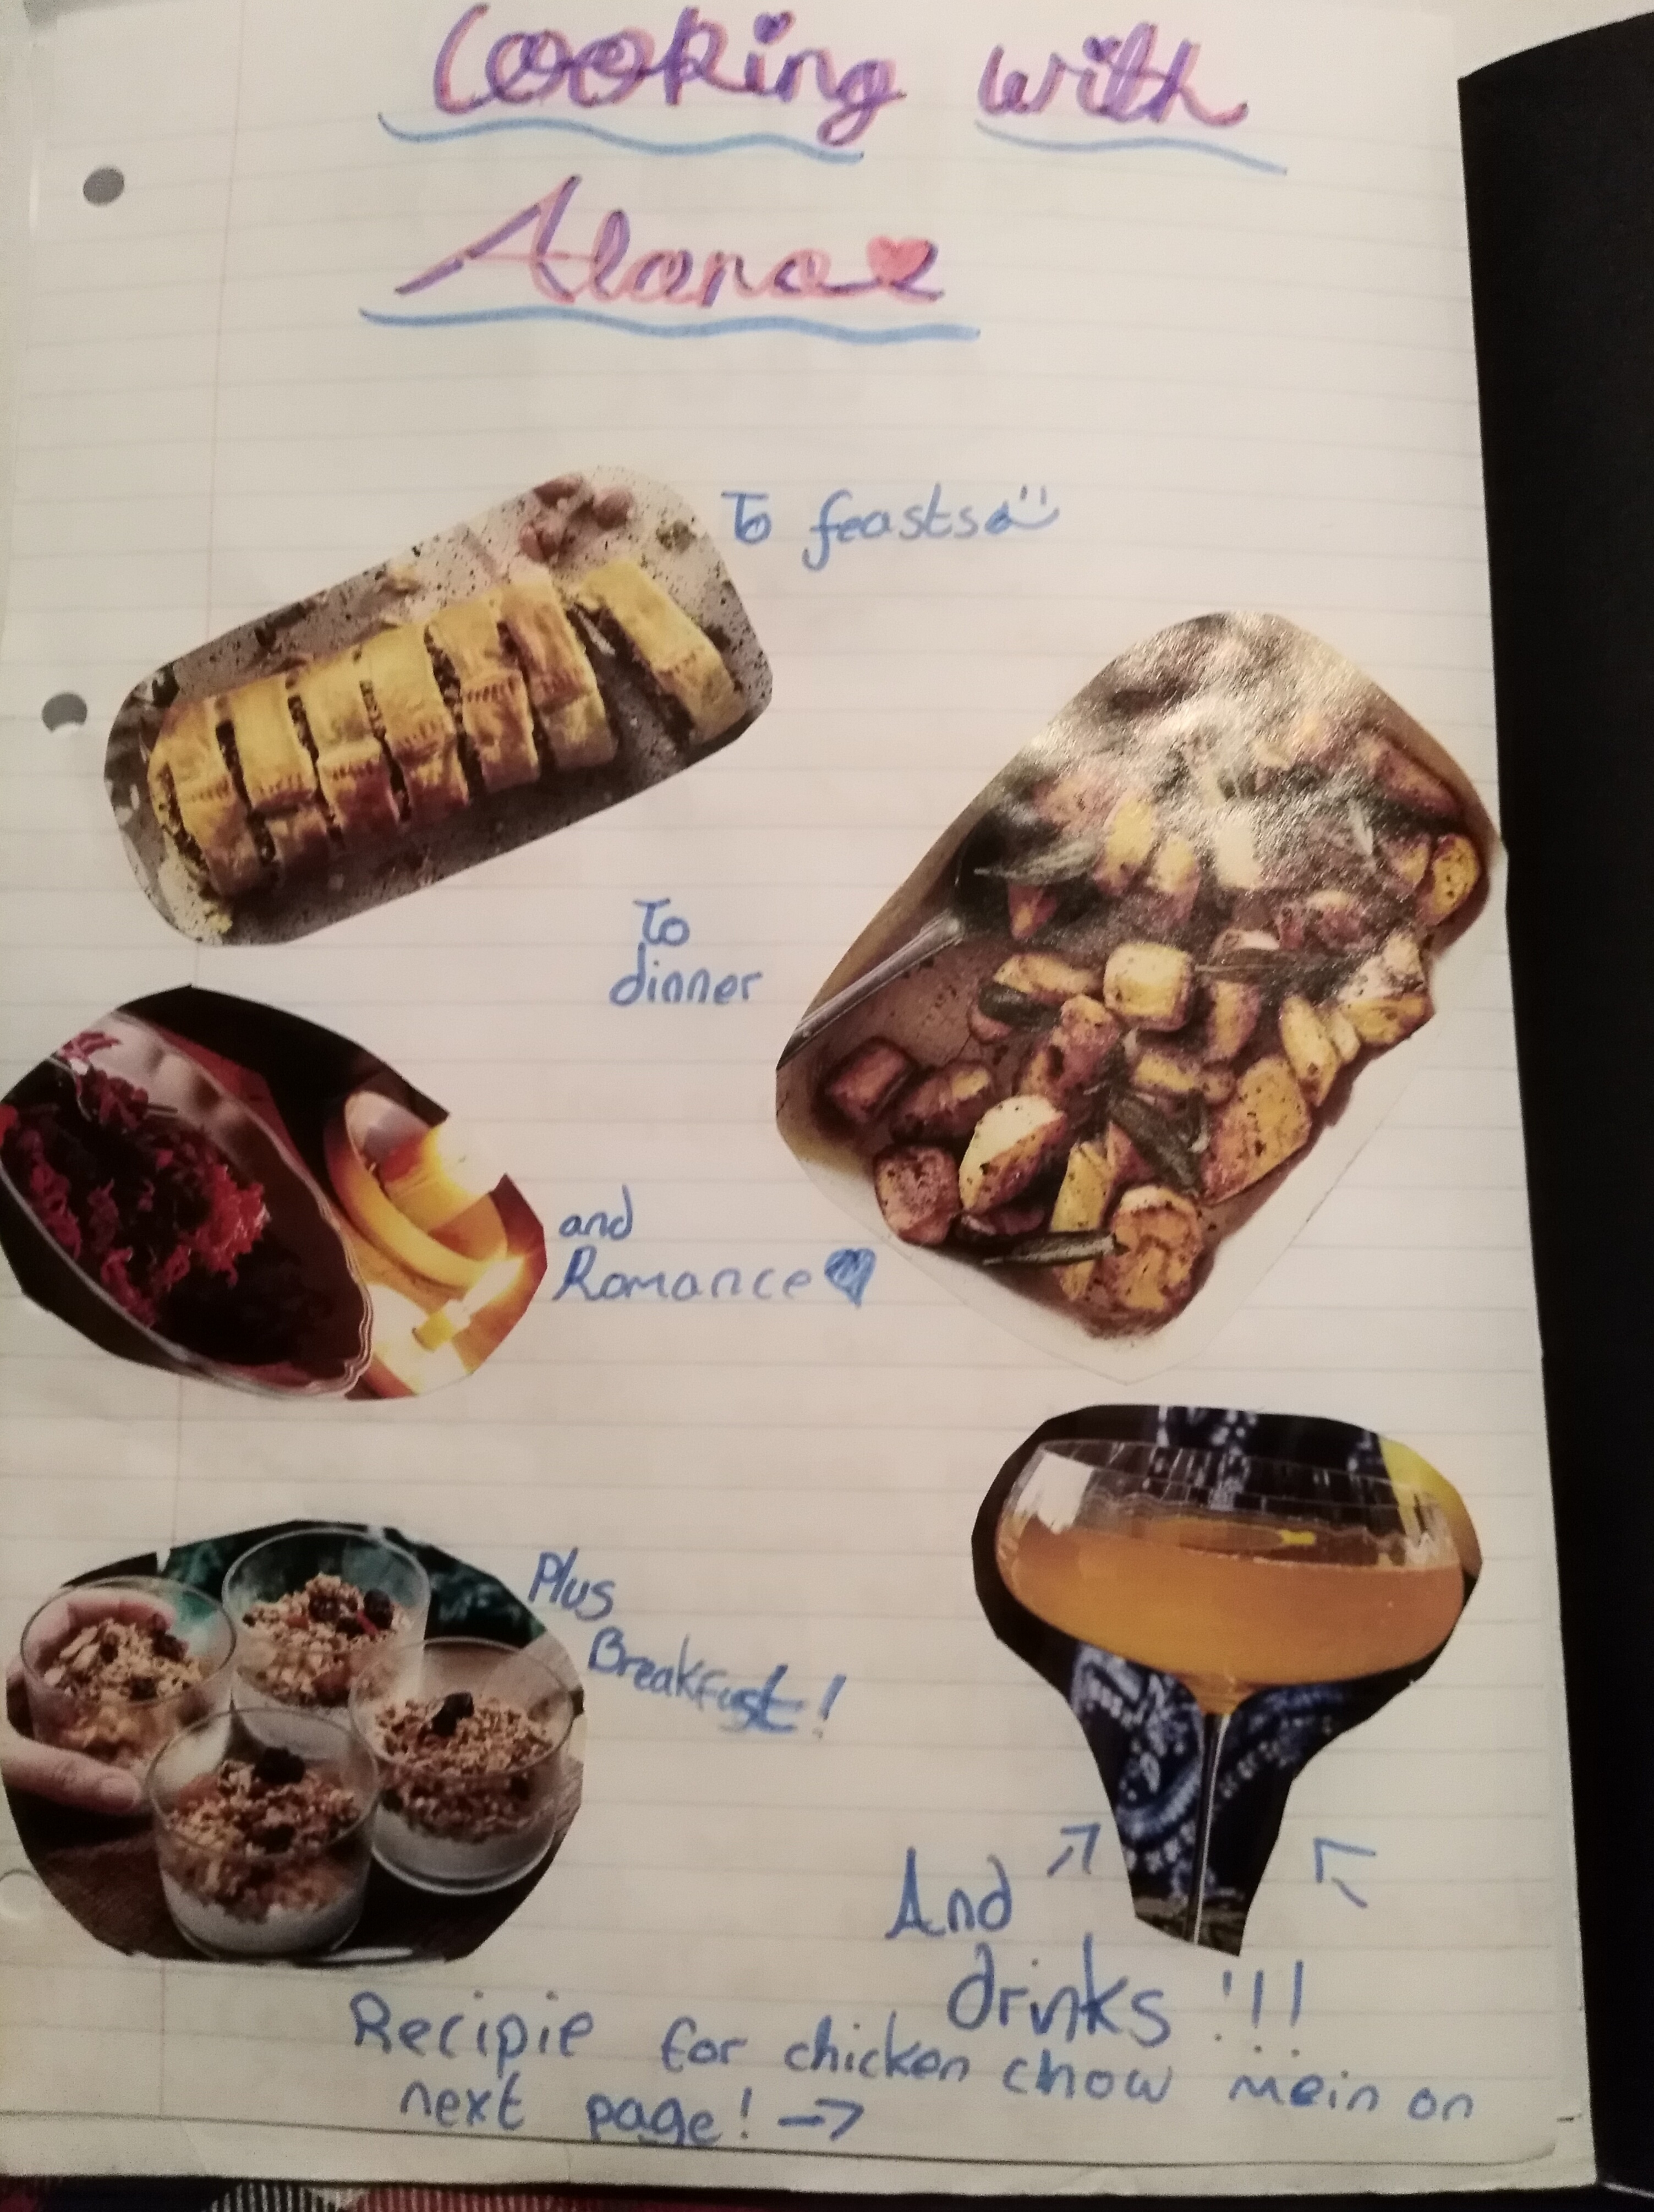 Cooking with
Alana
To feasts
To
dinner
and
Romance
Plus
Breakfast!
And
drinks!!!
Recipie for chicken chow mein on
next page! →